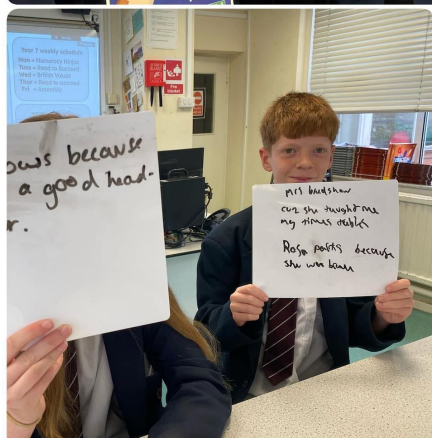 Year 7 weekly schedule
Mon = Numeracy Ninjas
Tues = Read to Succeed
Wed = British Values
Thur = Read to succeed
Fri = Assembly
ows because
a good head-
r.
Mrs bradshaw
cuz she taught me
my times
Rosa parks because
she was